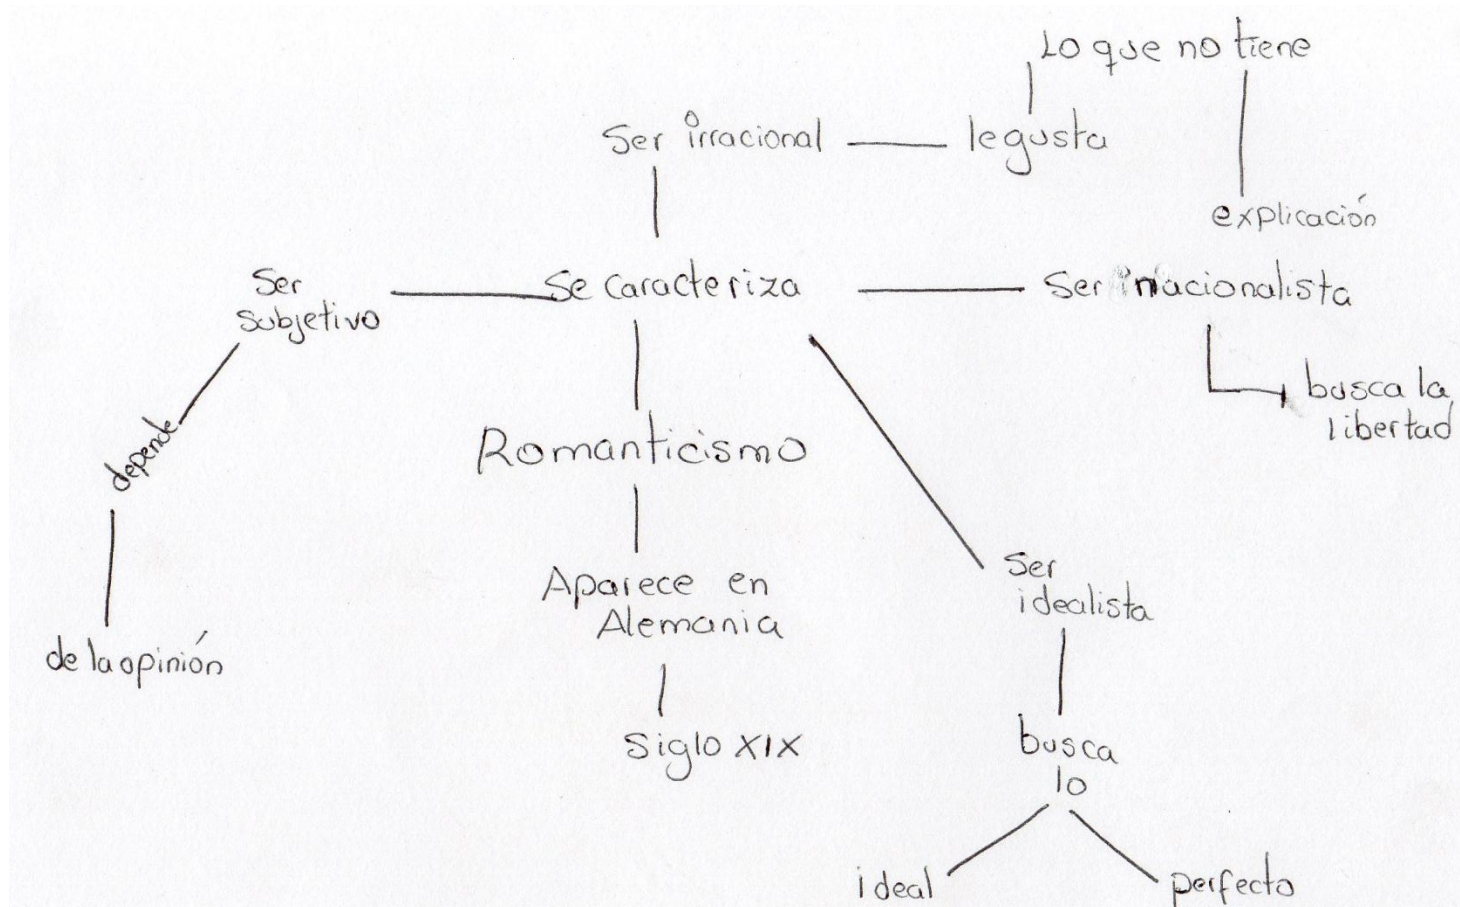 Lo que no tiene
Ser irracional
le gusta
explicación
Ser
subjetivo
Se caracteriza
Ser nacionalista
busca la
libertad
depende
Romanticismo
de la opinión
Aparece en
Alemania
Siglo XIX
Ser
idealista
busca
lo
ideal
perfecto